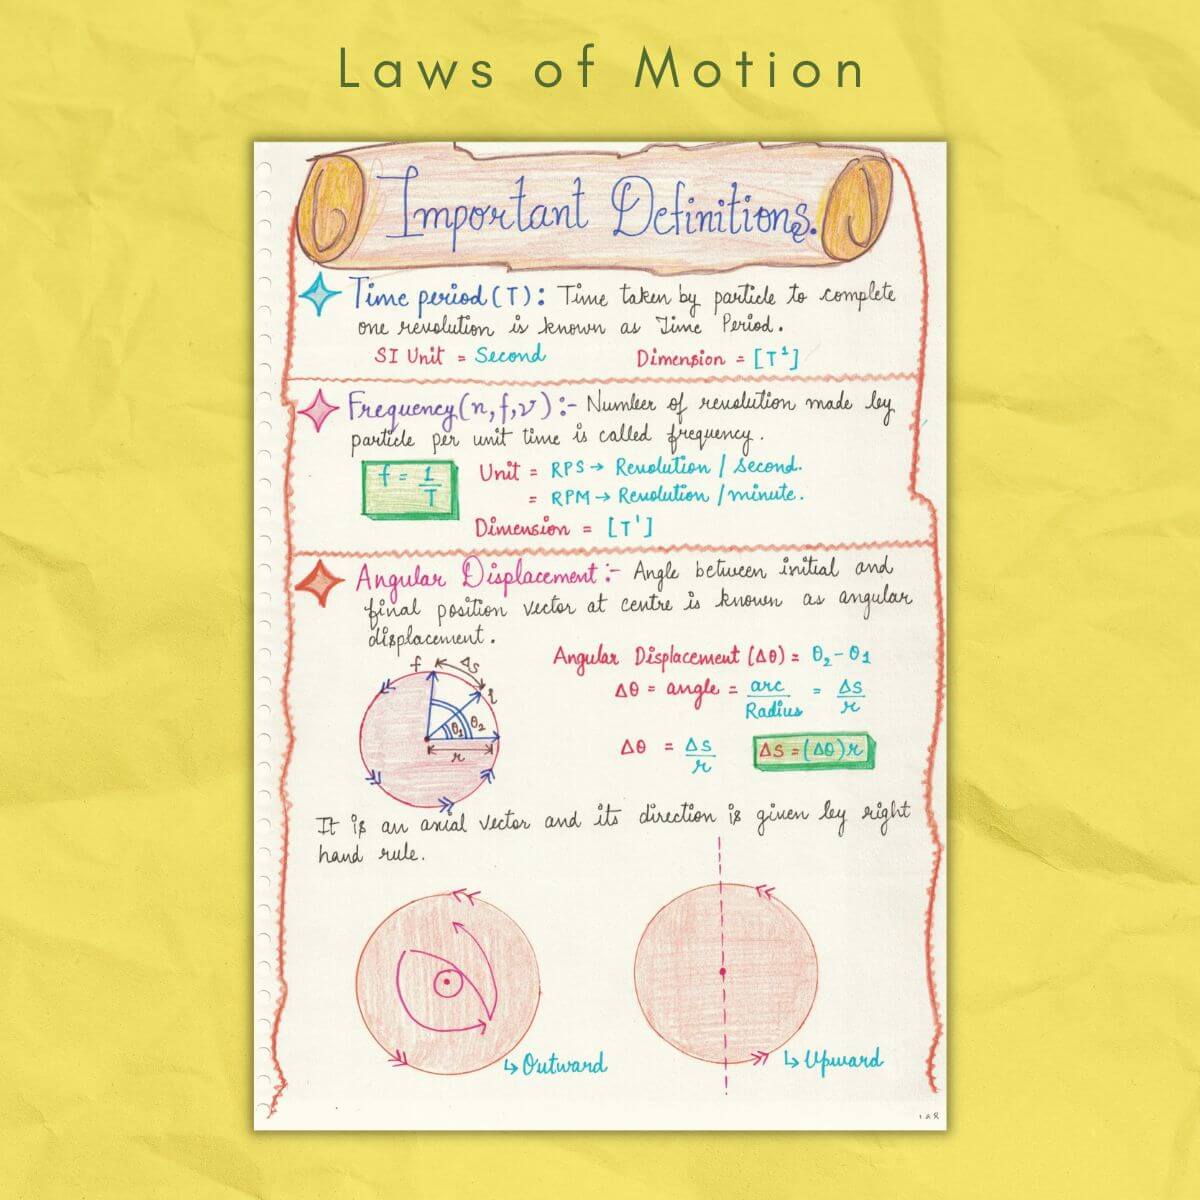 Laws of Motion
Important Definitions.
Time period (T): Time taken by particle to complete
one revolution is known as Time Period.
SI Unit = Second Dimension = [T¹]
Frequency (n, f, ν) :- Number of revolution made by
particle per unit time is called frequency.
f = 1/T
Unit = RPS → Revolution / second.
= RPM → Revolution / minute.
Dimension = [T¹]
Angular Displacement :- Angle between initial and
final position vector at centre is known as angular
displacement.
f Δs i
θ₁ θ₂
r
Angular Displacement (Δθ) = θ₂ - θ₁
Δθ = angle = arc/Radius = Δs/r
Δθ = Δs/r Δs = (Δθ)r
It is an axial vector and its direction is given by right
hand rule.
↳ Outward
↳ Upward